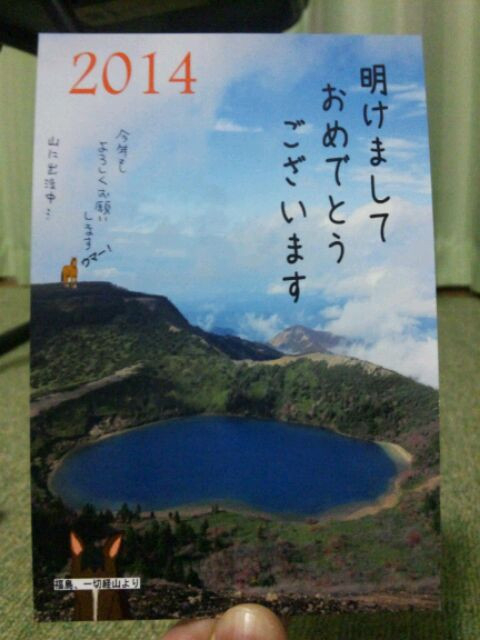 2014
明けまして
おめでとう
ございます
今年も
よろしくお願い
します
山に出没中
福島、一切経山より